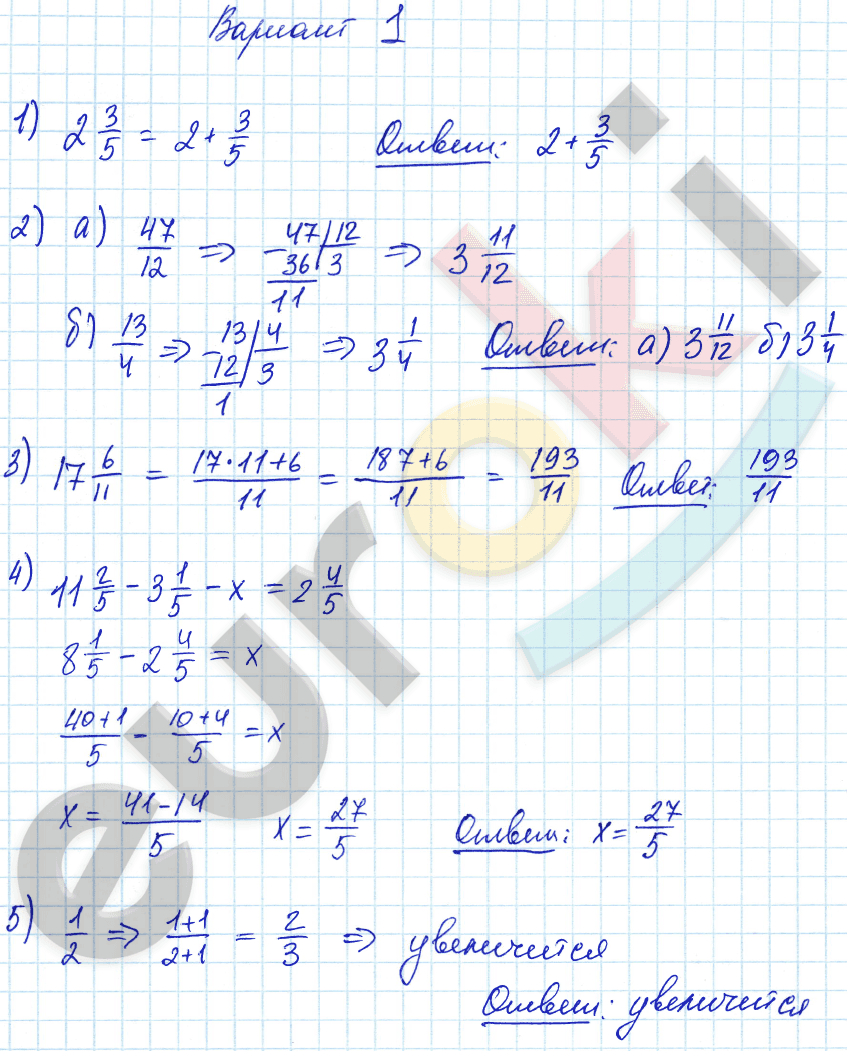 Вариант 1
1) 2 3/5 = 2 + 3/5 Ответ: 2 + 3/5
2) а) 47/12 => 47 | 12 => 3 11/12
- 36 | 3
11
б) 13/4 => 13 | 4 => 3 1/4 Ответ: а) 3 11/12 б) 3 1/4
- 12 | 3
1
3) 17 6/11 = (17·11+6)/11 = (187+6)/11 = 193/11 Ответ: 193/11
4) 11 2/5 - 3 1/5 - x = 2 4/5
8 1/5 - 2 4/5 = x
(40+1)/5 - (10+4)/5 = x
x = (41-14)/5 x = 27/5 Ответ: x = 27/5
5) 1/2 => (1+1)/(2+1) = 2/3 => увеличится
Ответ: увеличится
euroki